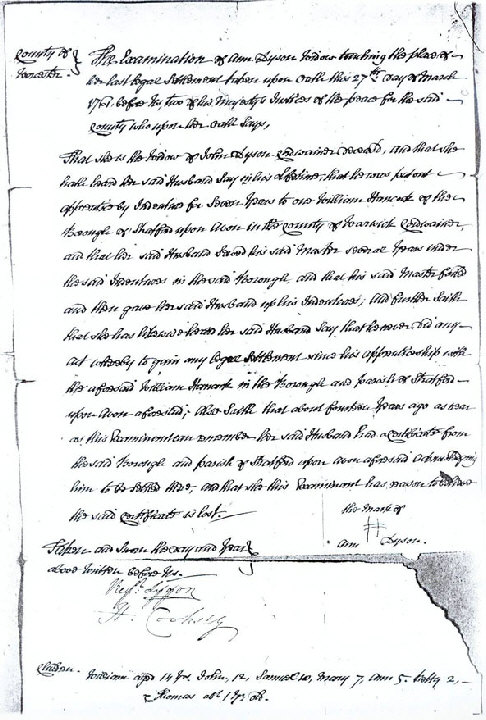 County of
Worcester.
The Examination of Ann Dyson Widow touching the place of
her last legal Settlement taken upon Oath this 27th day of March
1761 before us two of his Majestys Justices of the peace for the said
County who upon her Oath Says,
That she is the Widow of John Dyson Cordwainer deceased, and that she
hath heard her said Husband Say in his lifetime, that he was put out
apprentice by Indenture for Seven Years to one William of the
Borough of Stratford upon Avon in the County of Warwick Cordwainer,
and that her said Husband served his said Master several Years under
the said Indentures in the said Borough, and that his said Master
and there gave her said Husband up his Indentures; And further Saith
that she has likewise heard her said Husband Say that he never did any
act whereby to gain any legal Settlement since his apprenticeship with
the aforesaid William in the Borough and parish of Stratford
upon Avon aforesaid; Also Saith that about fourteen Years ago as near
as this Examinant can remember her said Husband had a Certificate from
the said Borough and parish of Stratford upon Avon aforesaid acknowledging
him to be settled there, and that she this Examinant has reason to believe
the said Certificate is lost.
the mark of
Ann Dyson.
Taken and Sworn the day and Year
above written before Us.
Regd. Lygon
H. Cooksey
Children. William aged 14 Yrs. John, 12, Samuel 10, Mary 7, Ann 5, Betty 2,
Thomas abt. 1 Yr. old.